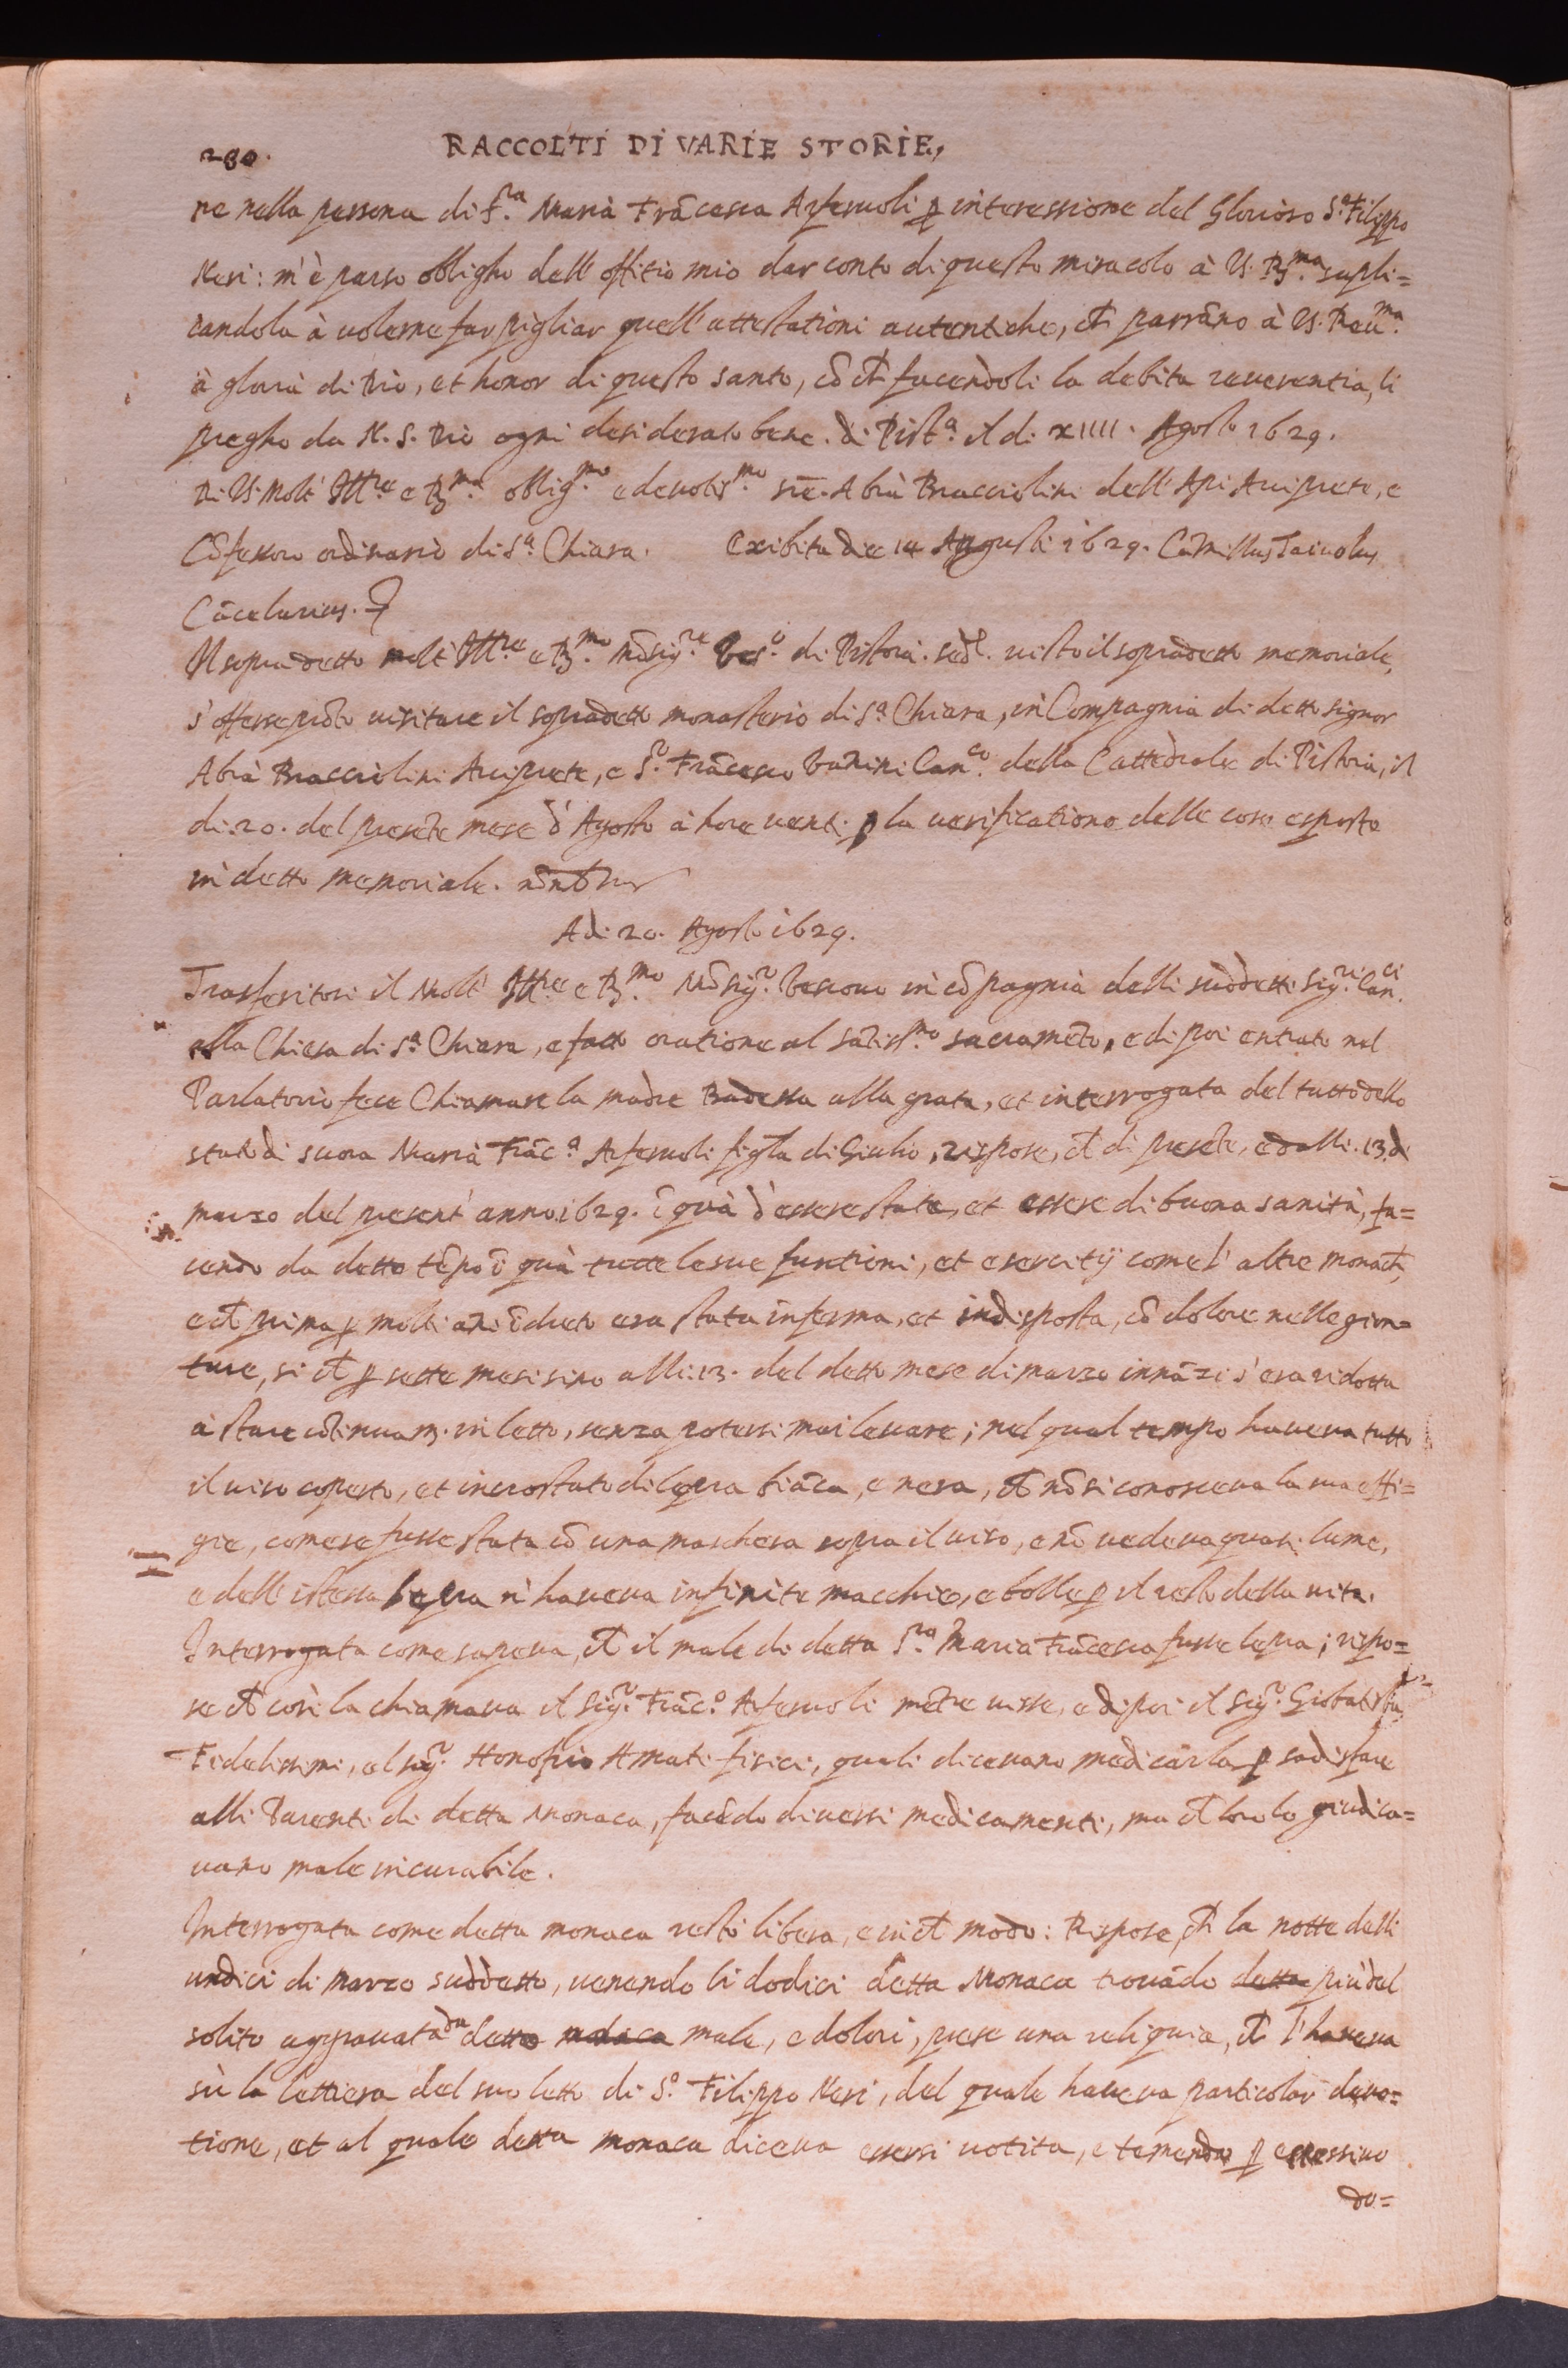 280. RACCOLTI DI VARIE STORIE,
ne nella persona di S.ra Maria Frãcesca Arferuoli ꝑ intercessione del Glorioso S.o Filippo
Neri: m'è parso obligho dell'offitio mio dar conto di questo miracolo à VS. R.ma supli=
candola à volerne far pigliar quell'attestationi autentiche, ch̃ parrãno à VS. Reu.ma
à gloria di Dio, et honor di questo santo, cõ ch̃ facendoli la debita reuerentia, li
pregho da N. S. Dio ogni desiderato bene. di Pist.a il di XIIII. Agosto 1629.
Di VS. Molt' Ill.re e R.ma oblig.mo e deuotis.mo Abrã Bracciolini dell'Api Arciprete, e
Cõfessoro ordinario di S.a Chiara. Exibita die 14 Augusti 1629. Camillus
Cãcelarius.
Il sopradetto molt' Ill.re e R.mo Mõsig.re Ves.o di Pistoia. visto il sopradetto memoriale,
s'offerse prõto visitare il sopradetto monasterio di S.a Chiara, in Compagnia di detto signor
Abrã Bracciolini Arciprete, e S.r Frãcesco Vanini Can.co della Cattedrale di Pistoia, il
di 20. del presẽte mese d'Agosto à hore uenti ꝑ la uerificatione delle cose esposte
in detto memoriale.
Adi 20. Agosto 1629.
Trasferitosi il Molt' Ill.re e R.mo Mõsig.r Vescouo in cõpagnia delli suddetti Sig.ri Can.ci
alla Chiesa di S.a Chiara, e fatto oratione al sãtiss.mo sacramẽto, e di poi entrato nel
Parlatorio fece Chiamare la madre Badessa alla grata, et interrogata del tutto dello
stato di suora Maria Frãc.a Arferuoli figl̃a di Giulio, rispose, ch̃ di presẽte, e dalli 13. di
marzo del present' anno 1629. ĩ quà d'essere stata, et essere di buona sanità, fa=
cendo da detto tẽpo ĩ quà tutte le sue funtioni, et esercitij come l'altre monach̃,
e ch̃ prima ꝑ molti ãni ĩdreto era stata inferma, et indisposta, cõ dolore nelle giun=
ture, si ch̃ ꝑ sette mesi sino alli 13. del detto mese di marzo innãzi s'era ridotta
à stare cõtinuam. in letto, senza potersi mai leuare; nel qual tempo haueua tutto
il uiso coperto, et incrostato di lepra biãca, e nera, ch̃ nõ si conosceua la sua effi=
gie, come se fusse stata cõ una maschera sopra il uiso, e nõ uedeua quasi lume,
e dell'istessa lepra n'haueua infinite macchie, e bolle ꝑ il resto della uita.
Interrogata come sapeua, ch̃ il male di detta S.ra Maria Frãcesca fusse lepra; rispo=
se ch̃ così la chiamaua il Sig.r Frãc.o Arferuoli mẽtre uisse, e di poi il Sig.r Giobatista
Fidelissimi, el sig.r Honofrio Amati fisici, quali diceuano medicarla ꝑ sadisfare
alli Parenti di detta Monaca, facẽdo diuersi medicamenti, ma ch̃ loro lo giudica=
uano male incurabile.
Interrogata come detta monaca restò libera, e in ch̃ modo: Rispose, ch̃ la notte delli
undici di marzo suddetto, uenendo li dodici detta Monaca trouãdo detta più del
solito aggrauata da detto male, e dolori, prese una reliquia, ch̃ l'haueua
sù la lettiera del suo letto di S.o Filippo Neri, del quale haueua particolar deuo=
tione, et al quale detta monaca diceua essersi uotita, e temendo ꝑ eccessiuo
do=